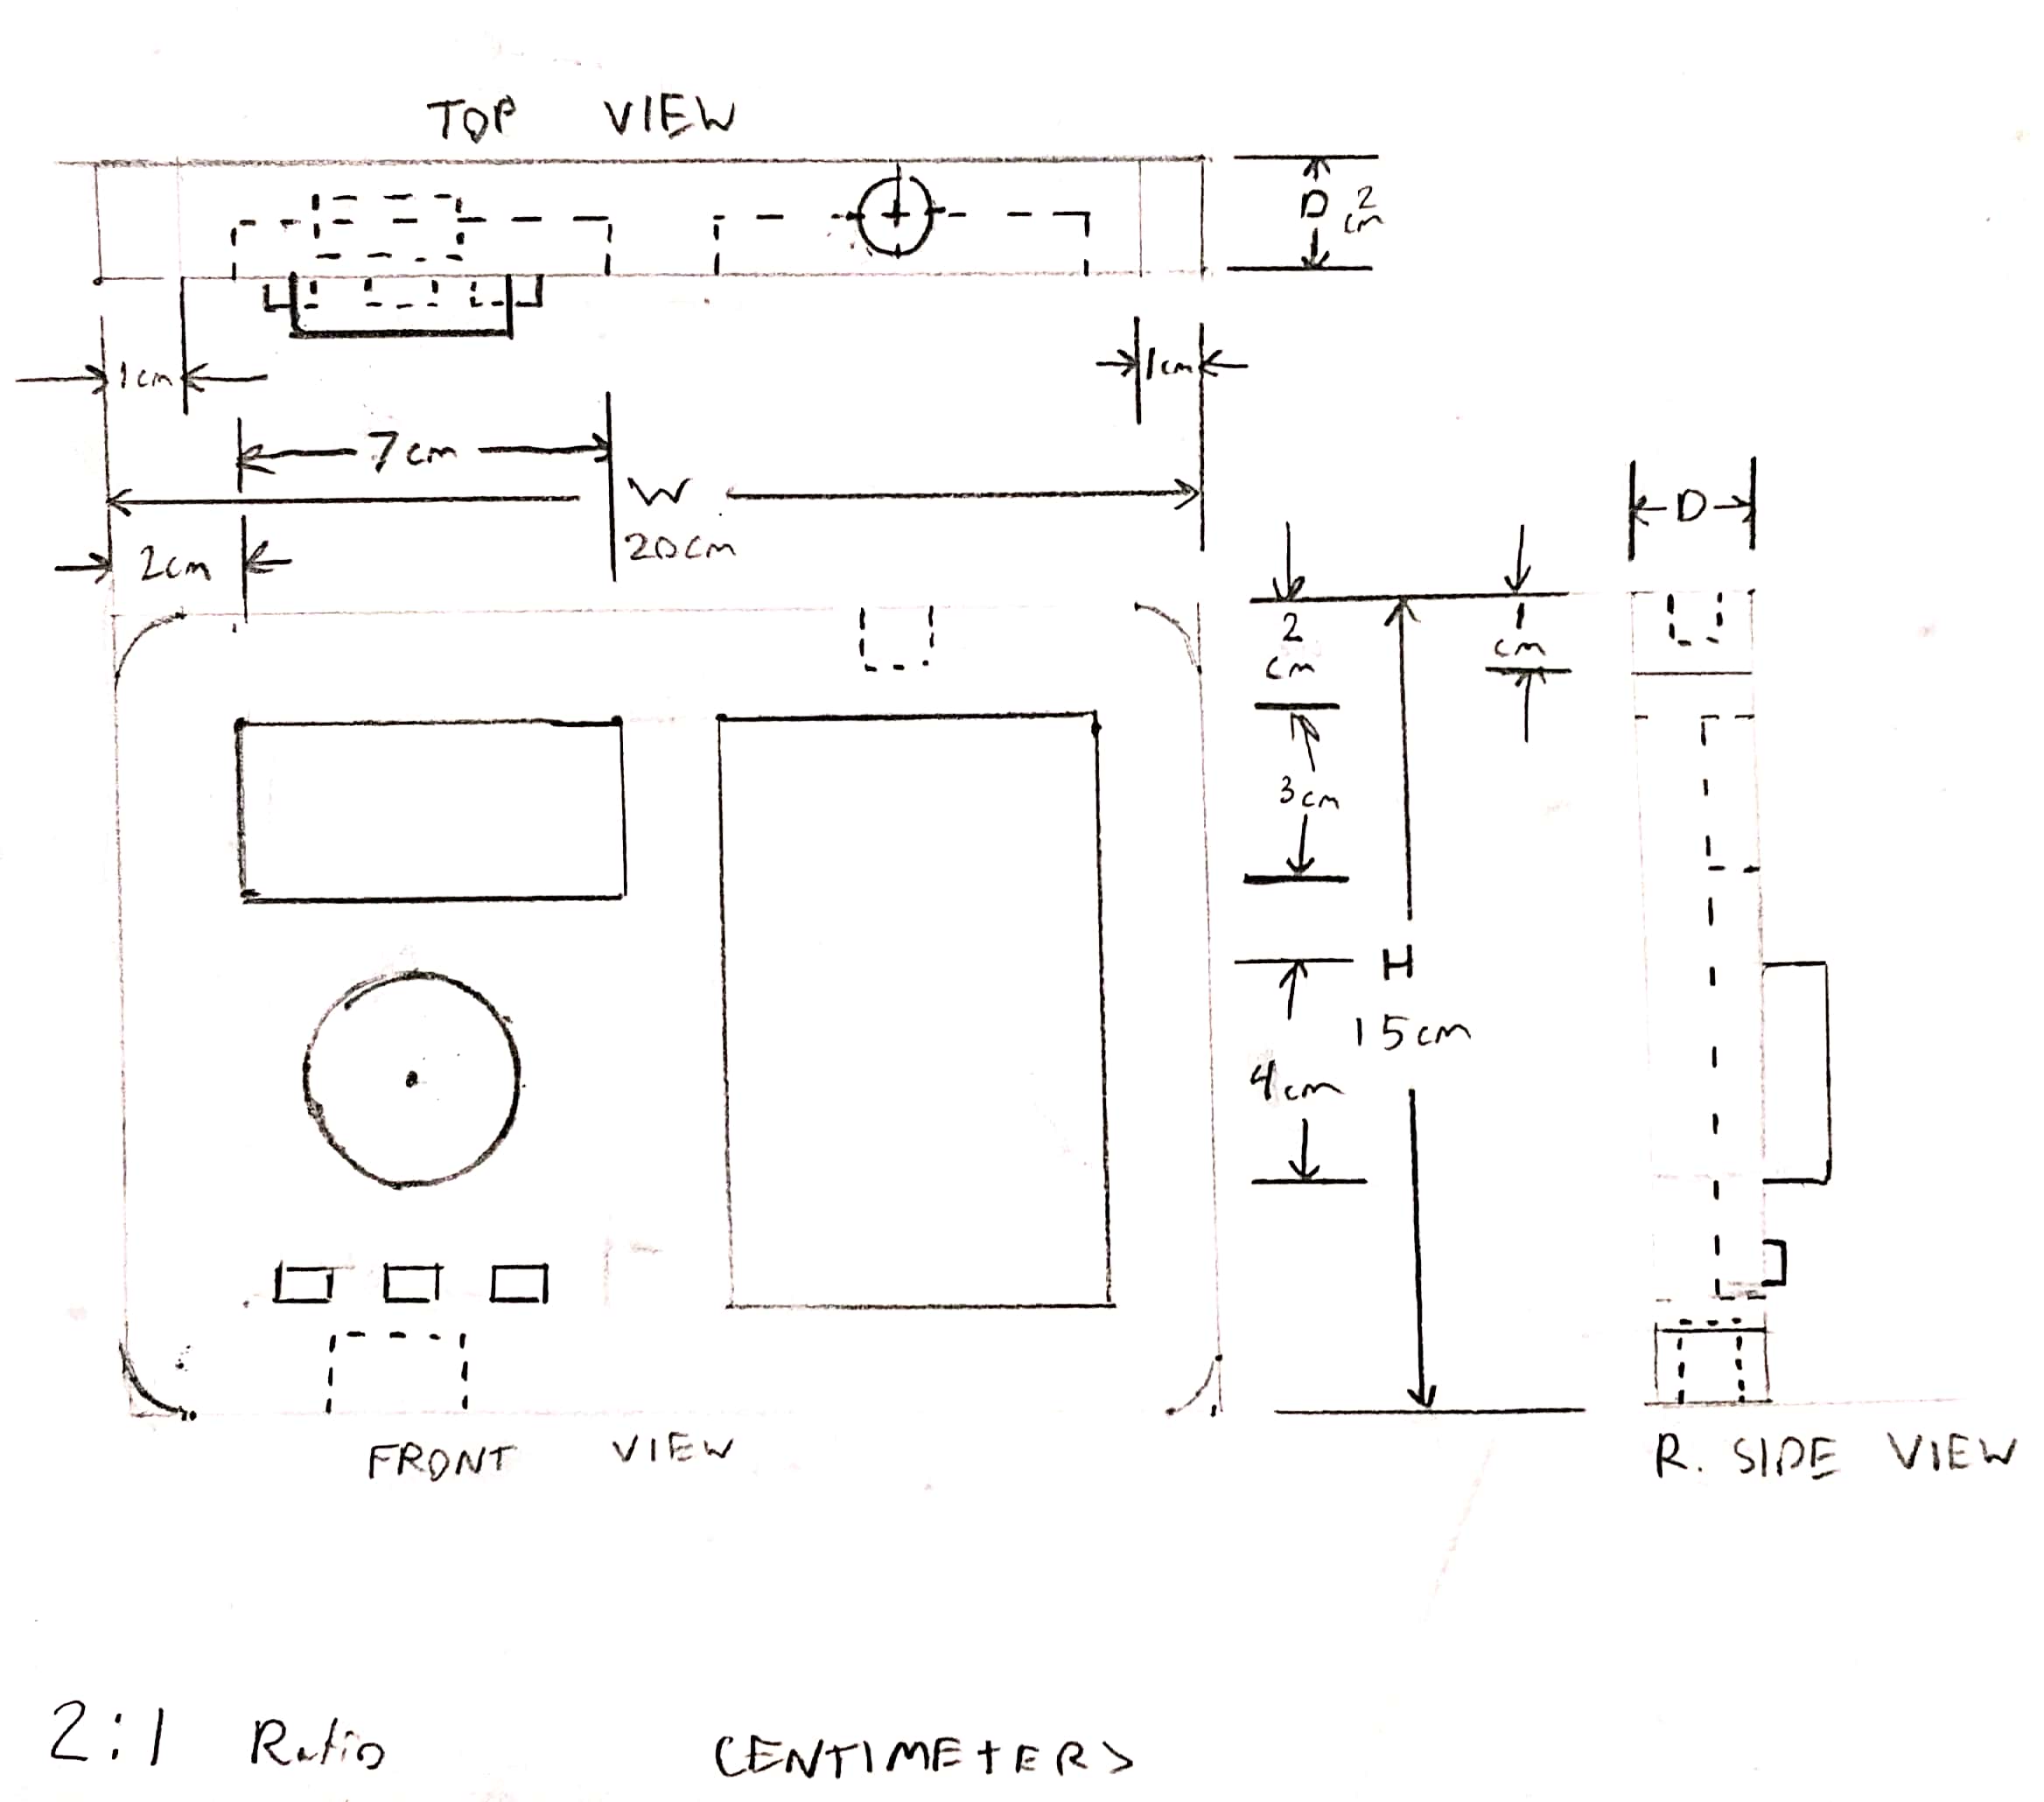 TOP VIEW
D 2 cm
1cm
1cm
7cm
W
20cm
2cm
D
2 cm
1 cm
3cm
H
15cm
4cm
FRONT VIEW
R. SIDE VIEW
2:1 Ratio
CENTIMETERS